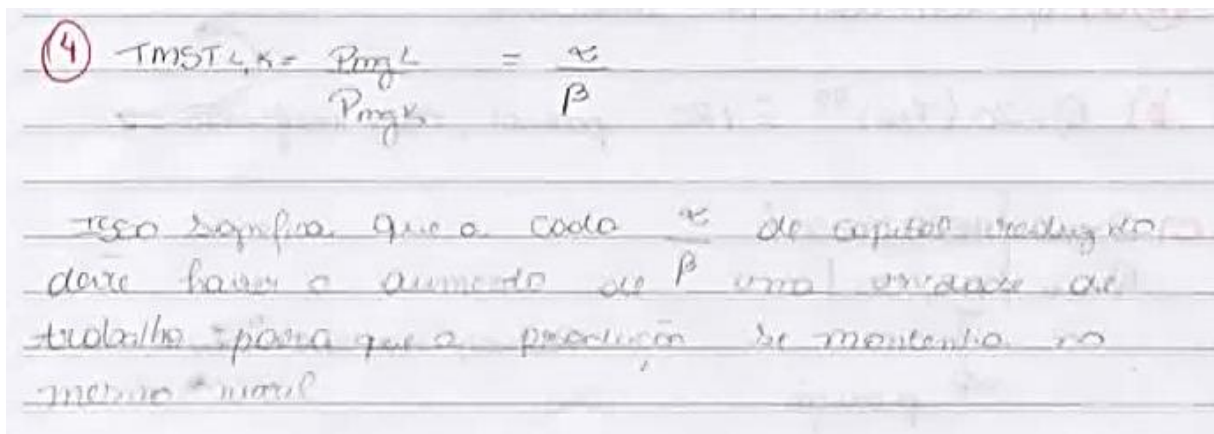 4 TMSTL,K= PmgL = α
PmgK β
Isso significa que a cada α de capital reduzido
β
deve haver o aumento de uma unidade de
trabalho para que a produção se mantenha no
mesmo nível